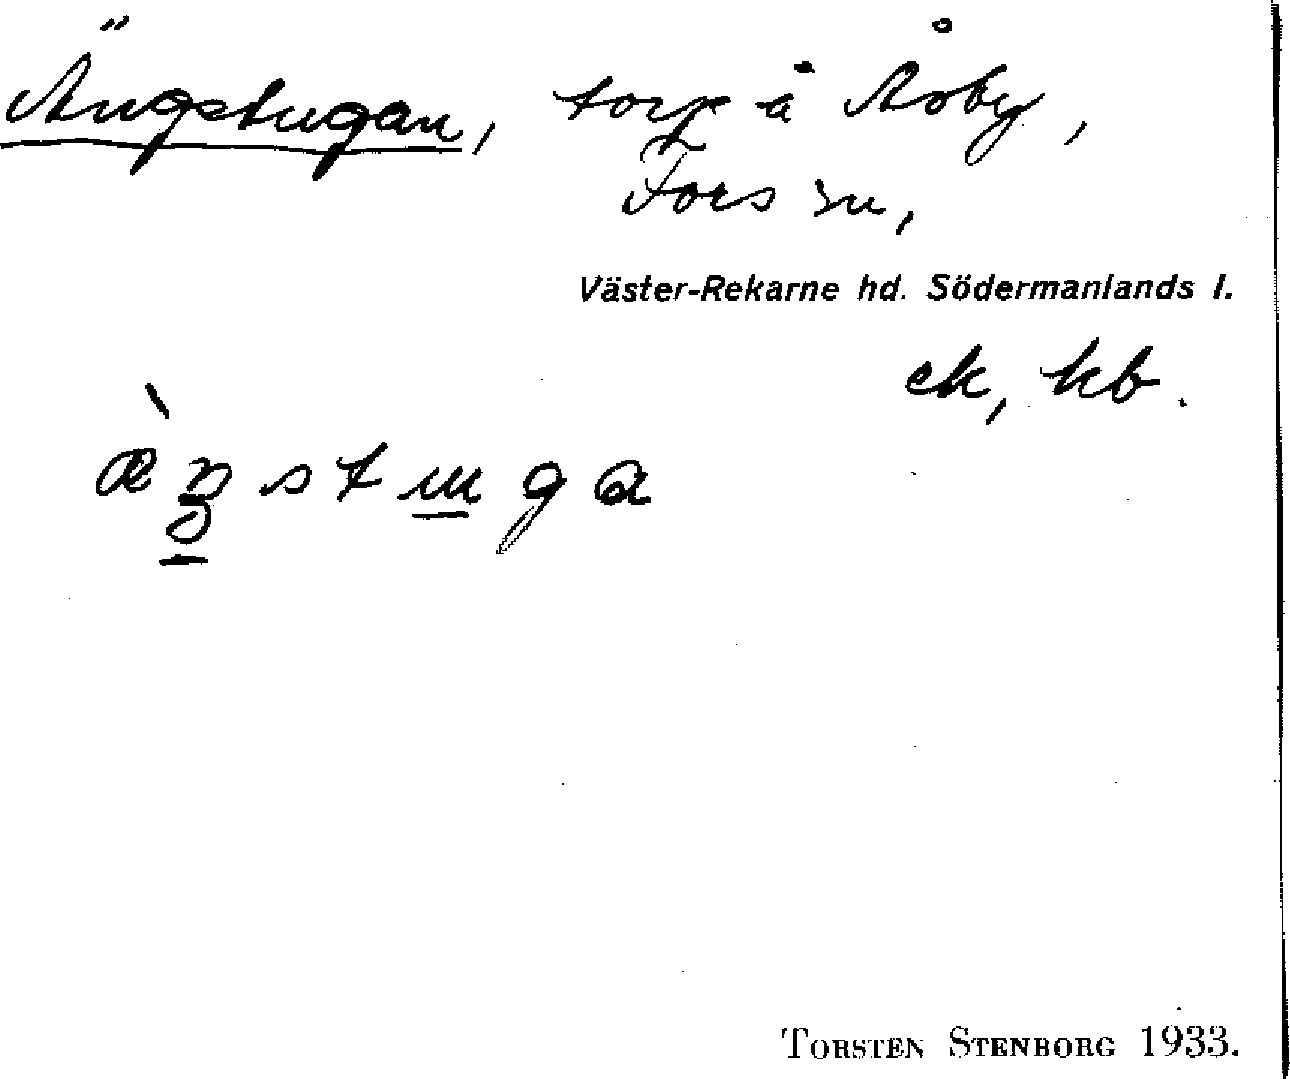 Ängstugan, torp å Åsby,
Fors sn,
Väster-Rekarne hd. Södermanlands l.
ek, kb.
æ̀ŋstuga
TORSTEN STENBORG 1933.